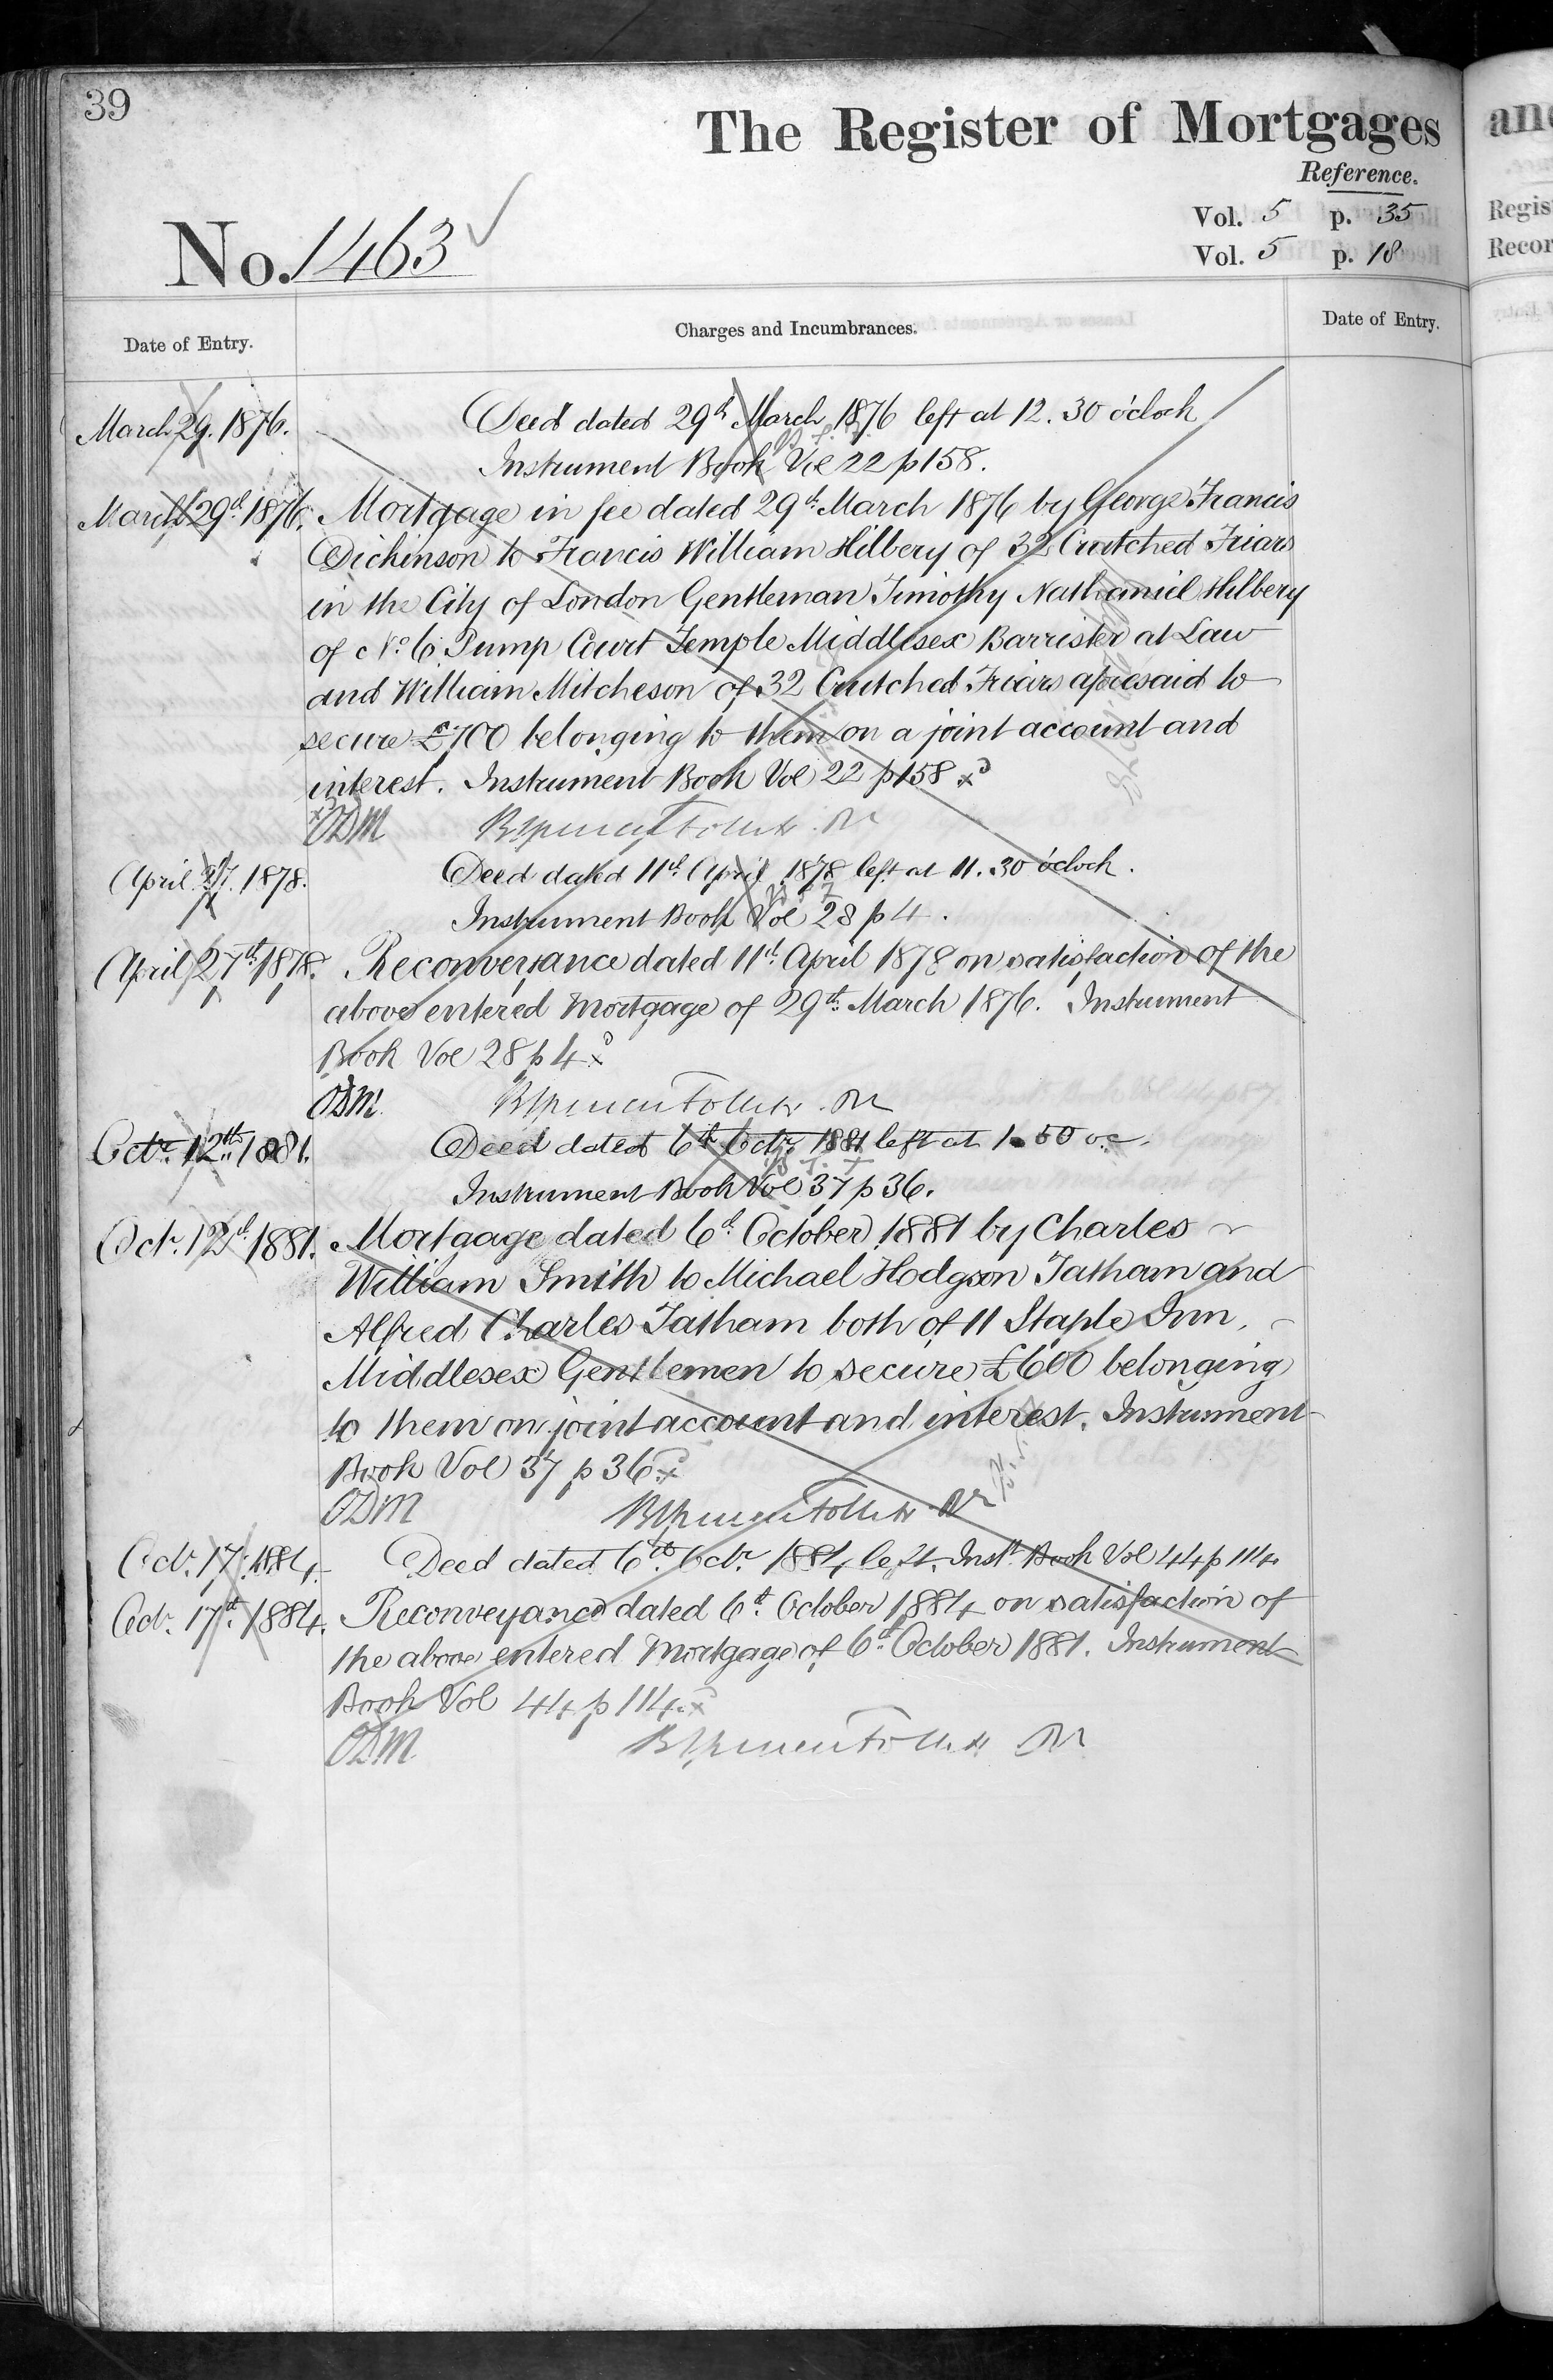 39
The Register of Mortgages
Reference.
Vol. 5 p. 35
No. 1463
Vol. 5 p. 18
Date of Entry.
Charges and Incumbrances.
Date of Entry.
March 29. 1876. Deed dated 29th March 1876 left at 12.30 o'clock
Instrument Book Vol 22 p 158.
March 29th 1876. Mortgage in fee dated 29th March 1876 by George Francis
Dickinson to Francis William Hilbery of 32 Crutched Friars
in the City of London Gentleman Timothy Nathaniel Hilbery
of No. 6 Pump Court Temple Middlesex Barrister at Law
and William Mitcheson of 32 Crutched Friars aforesaid to
secure £700 belonging to them on a joint account and
interest. Instrument Book Vol 22 p 158 x
ODM
April 27. 1878. Deed dated 11th April 1878 left at 11.30 o'clock.
Instrument Book Vol 28 p 4.
April 27th 1878. Reconveyance dated 11th April 1878 on satisfaction of the
above entered Mortgage of 29th March 1876. Instrument
Book Vol 28 p 4 x
ODM
Octr. 12th 1881. Deed dated 6th Octr. 1881 left at 1.50 o.c.
Instrument Book Vol 37 p 36.
Octr. 12th 1881. Mortgage dated 6th October 1881 by Charles
William Smith to Michael Hodgson Tatham and
Alfred Charles Tatham both of 11 Staple Inn,
Middlesex Gentlemen to secure £600 belonging
to them on joint account and interest. Instrument
Book Vol 37 p 36 x
ODM
Octr. 17. 1884. Deed dated 6th Octr. 1884 left. Inst. Book Vol 44 p 114
Octr. 17th 1884. Reconveyance dated 6th October 1884 on satisfaction of
the above entered Mortgage of 6th October 1881. Instrument
Book Vol 44 p 114 x
ODM
and
Regis
Recor